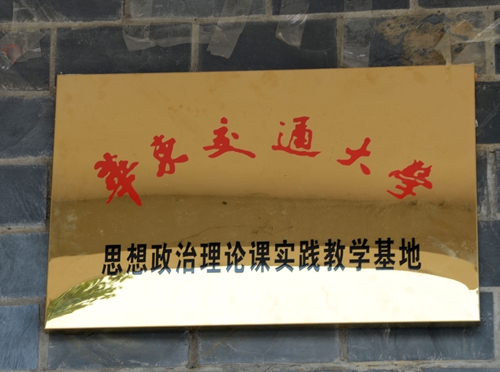 华东交通大学
思想政治理论课实践教学基地